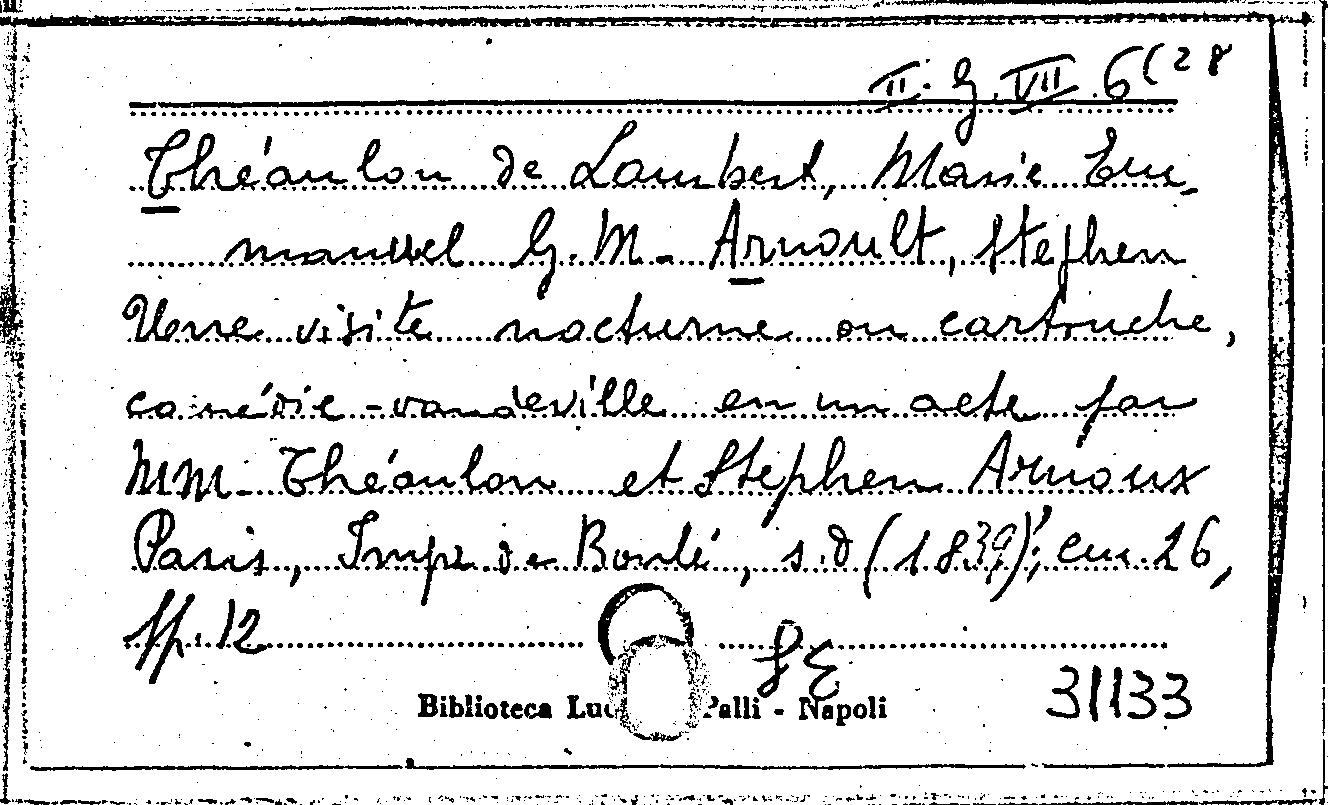 II. G. VII. 6(28
Théaulon de Lambert, Marie Em-
manuel G. M. - Arnoult, Stephen
Une visite nocturne ou cartouche,
comédie-vaudeville en un acte par
MM. Théaulon et Stephen Arnoux
Paris, Impr de Boulé, s.d (1839); cm. 26,
pp. 12
Biblioteca Palli - Napoli
31133